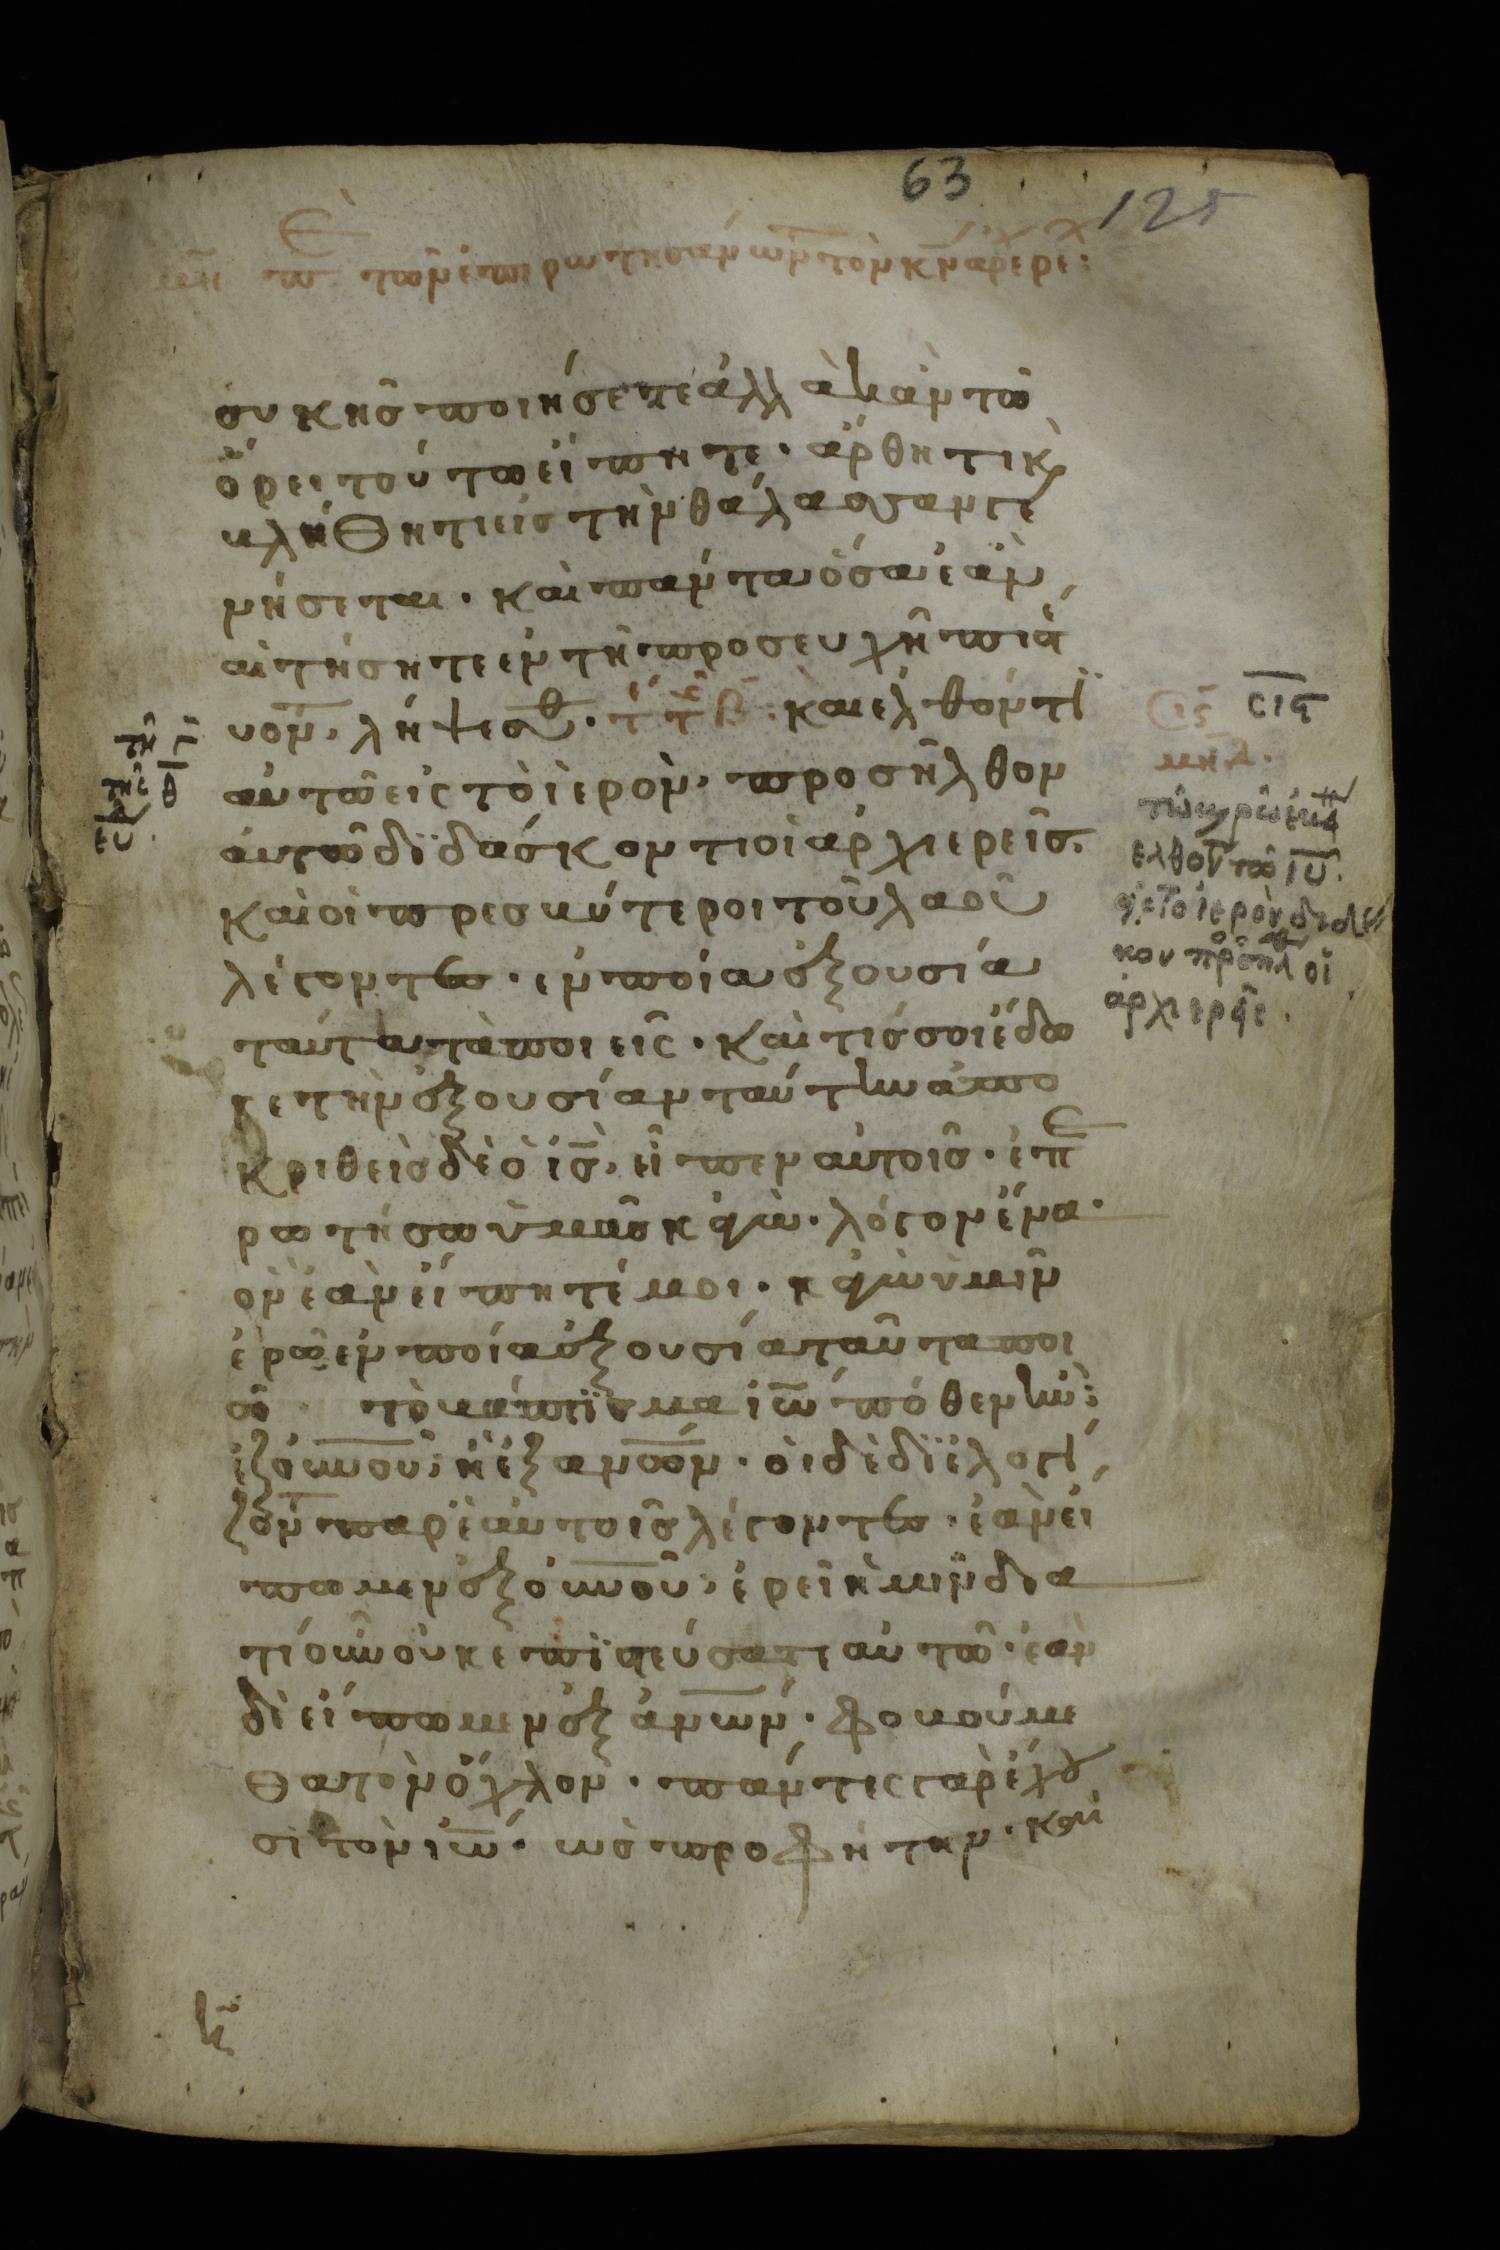 63
125
τῶν ἐπερωτησάντων τὸν κν
συκῆς ποιήσετε ἀλλὰ κἂν τῶ
ὄρει τούτω εἴπητε· ἄρθητι κ
βλήθητι εἰς τὴν θάλασσαν γε
νήσεται· καὶ πάντα ὅσα ἐὰν
αἰτήσητε ἐν τῆ προσευχῆ πιστεύ
οντ λήψεσθ· καὶ ἐλθόντι
αὐτῶ εἰς τὸ ἱερὸν, προσῆλθον
αὐτῶ διδάσκοντι οἱ ἀρχιερεῖς.
καὶ οἱ πρεσβύτεροι τοῦ λαοῦ
λέγοντες· ἐν ποία ἐξουσία
ταῦτα ποιεῖς· καὶ τίς σοι ἔδω
κε τὴν ἐξουσίαν ταύτην ἀπο
κριθεὶς δὲ ὁ ις, εἶπεν αὐτοῖς· ἐπε
ρωτήσω ὑμᾶς κἀγὼ· λόγον ἕνα·
ὃν ἐὰν εἴπητέ μοι· κἀγὼ ὑμῖν
ἐρῶ ἐν ποία ἐξουσία ταῦτα ποι
ῶ· τὸ βάπτισμα ἰω πόθεν ἦν;
ἐξ οὐνου, ἢ ἐξ ἀνων· οἱ δὲ διελογί
ζον παρ' ἑαυτοῖς λέγοντες· ἐὰν εἴ
πωμεν ἐξ οὐνου, ἐρεῖ ἡμῖν δια
τί οὖν οὐκ ἐπιστεύσατε αὐτῶ· ἐὰν
δὲ εἴπωμεν ἐξ ἀνων· φοβούμε
θα τὸν ὄχλον· πάντες γὰρ ἔχου
σι τὸν ἰω· ὡς προφήτην· καὶ
σιϛ
τῶ καιρῶ ἐκεί
ελθοντ τῶ ιυ
εἰς τὸ ἱερὸν διδάσ
κον προσηλθ οἱ
ἀρχιερεῖς.